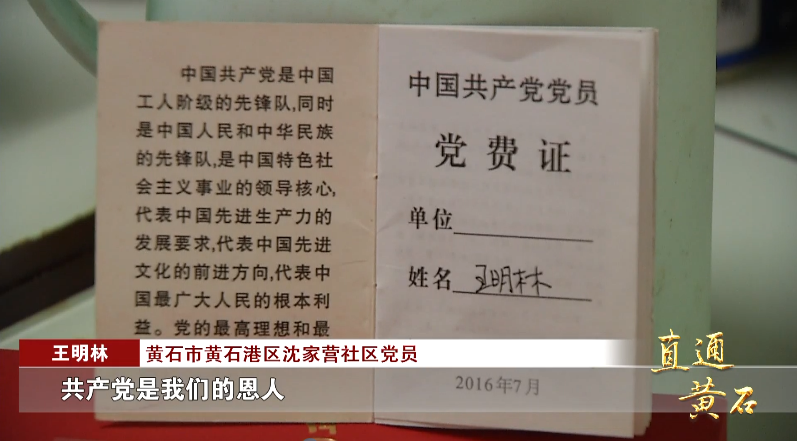 中国共产党是中国
工人阶级的先锋队,同时
是中国人民和中华民族
的先锋队,是中国特色社
会主义事业的领导核心,
代表中国先进生产力的
发展要求,代表中国先进
文化的前进方向,代表中
国最广大人民的根本利
益。党的最高理想和最
中国共产党党员
党费证
单位
姓名 王明林
2016年7月
王明林 黄石市黄石港区沈家营社区党员
共产党是我们的恩人
直通
黄石